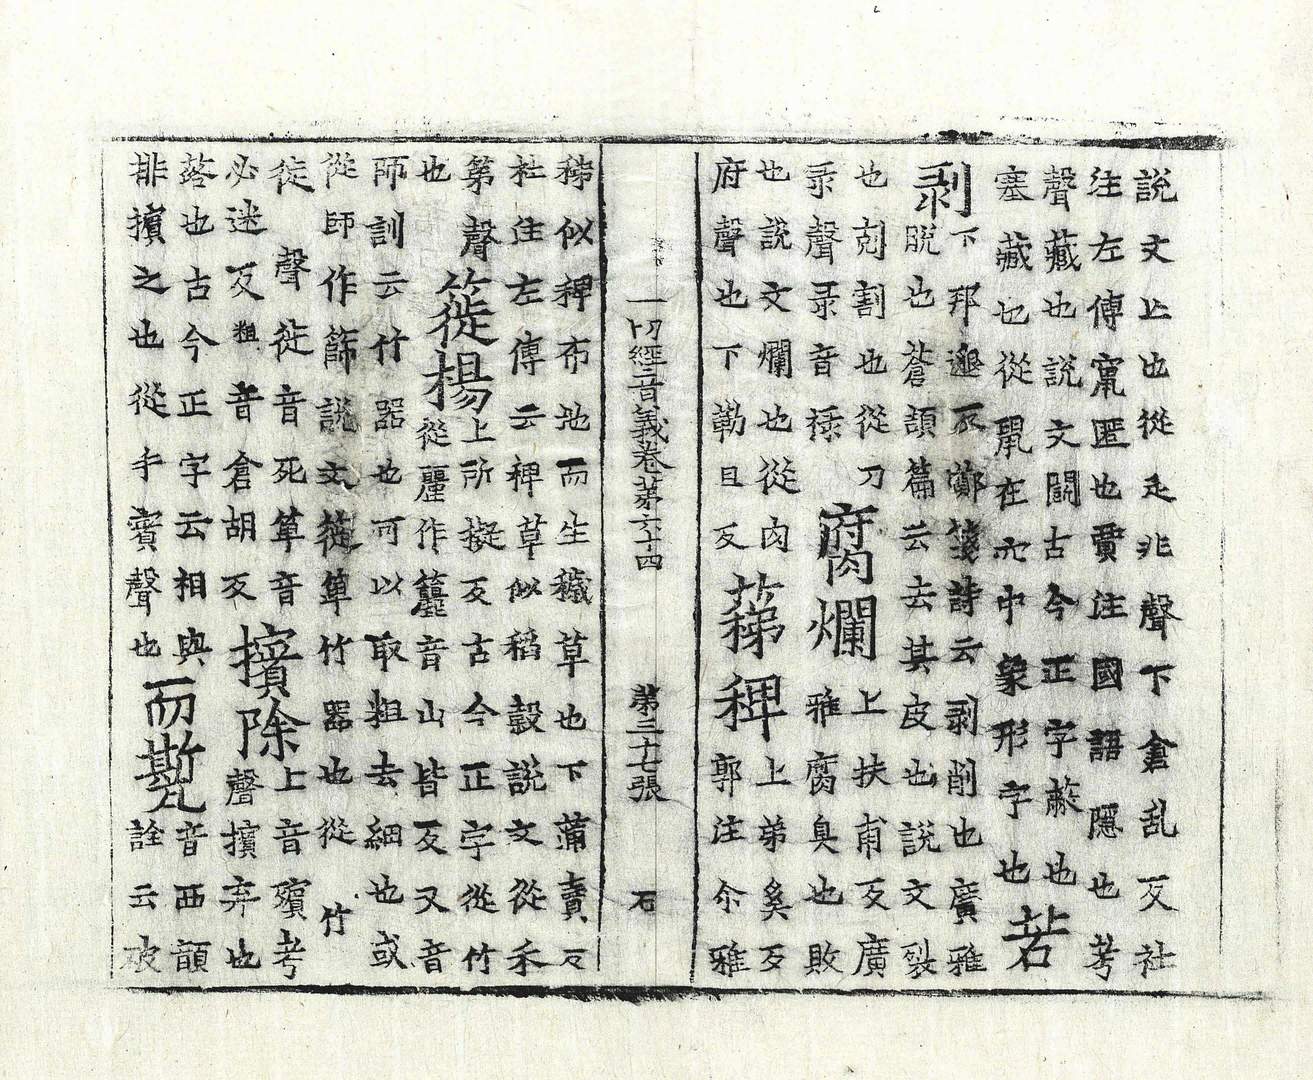 說文亾也從辵兆聲下倉乱反社
注左傳竄匿也賈注國語隱也考
聲藏也說文闕古今正字蔽也
塞藏也從鼠在穴中象形字也若
剥下邦邈反鄭箋詩云剥削也廣雅
脫也蒼頡篇云去其皮也說文裂
也剋割也從刀
录聲录音祿
腐爛上扶甫反廣
雅腐臭也敗
也說文爛也從肉
府聲也下勒旦反
蕛稗上弟奚反
郭注尒雅
一切經音義卷苐六十四 苐三十七張 石
稊似稗布地而生穢草也下蒲賣反
杜注左傳云稗草似稻穀說文從禾
第聲
也
簁揚上所擬反古今正字從竹
從麗作籭音山皆反又音
師訓云竹器也可以取粗去細也或
從師作篩說文簁箄竹器也從竹
徙聲徙音死箄音
必迷反粗音倉胡反
擯除上音殯考
聲擯弃也
落也古今正字云相與
排擯之也從手賓聲也
而㽄音西韻
詮云破